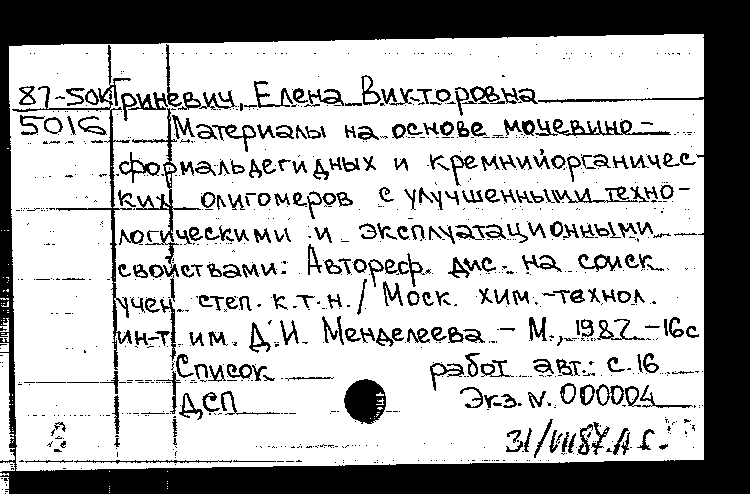 87-50К Гриневич, Елена Викторовна
5016 Материалы на основе мочевино-
формальдегидных и кремнийорганичес-
ких олигомеров с улучшенными техно-
логическими и эксплуатационными
свойствами: Автореф. дис. на соиск
учен. степ. к.т.н. / Моск. хим.-технол.
ин-т им. Д.И. Менделеева. – М., 1987. –16с
Список работ авт.: с.16
ДСП Экз. N. 000004
31/VII87.